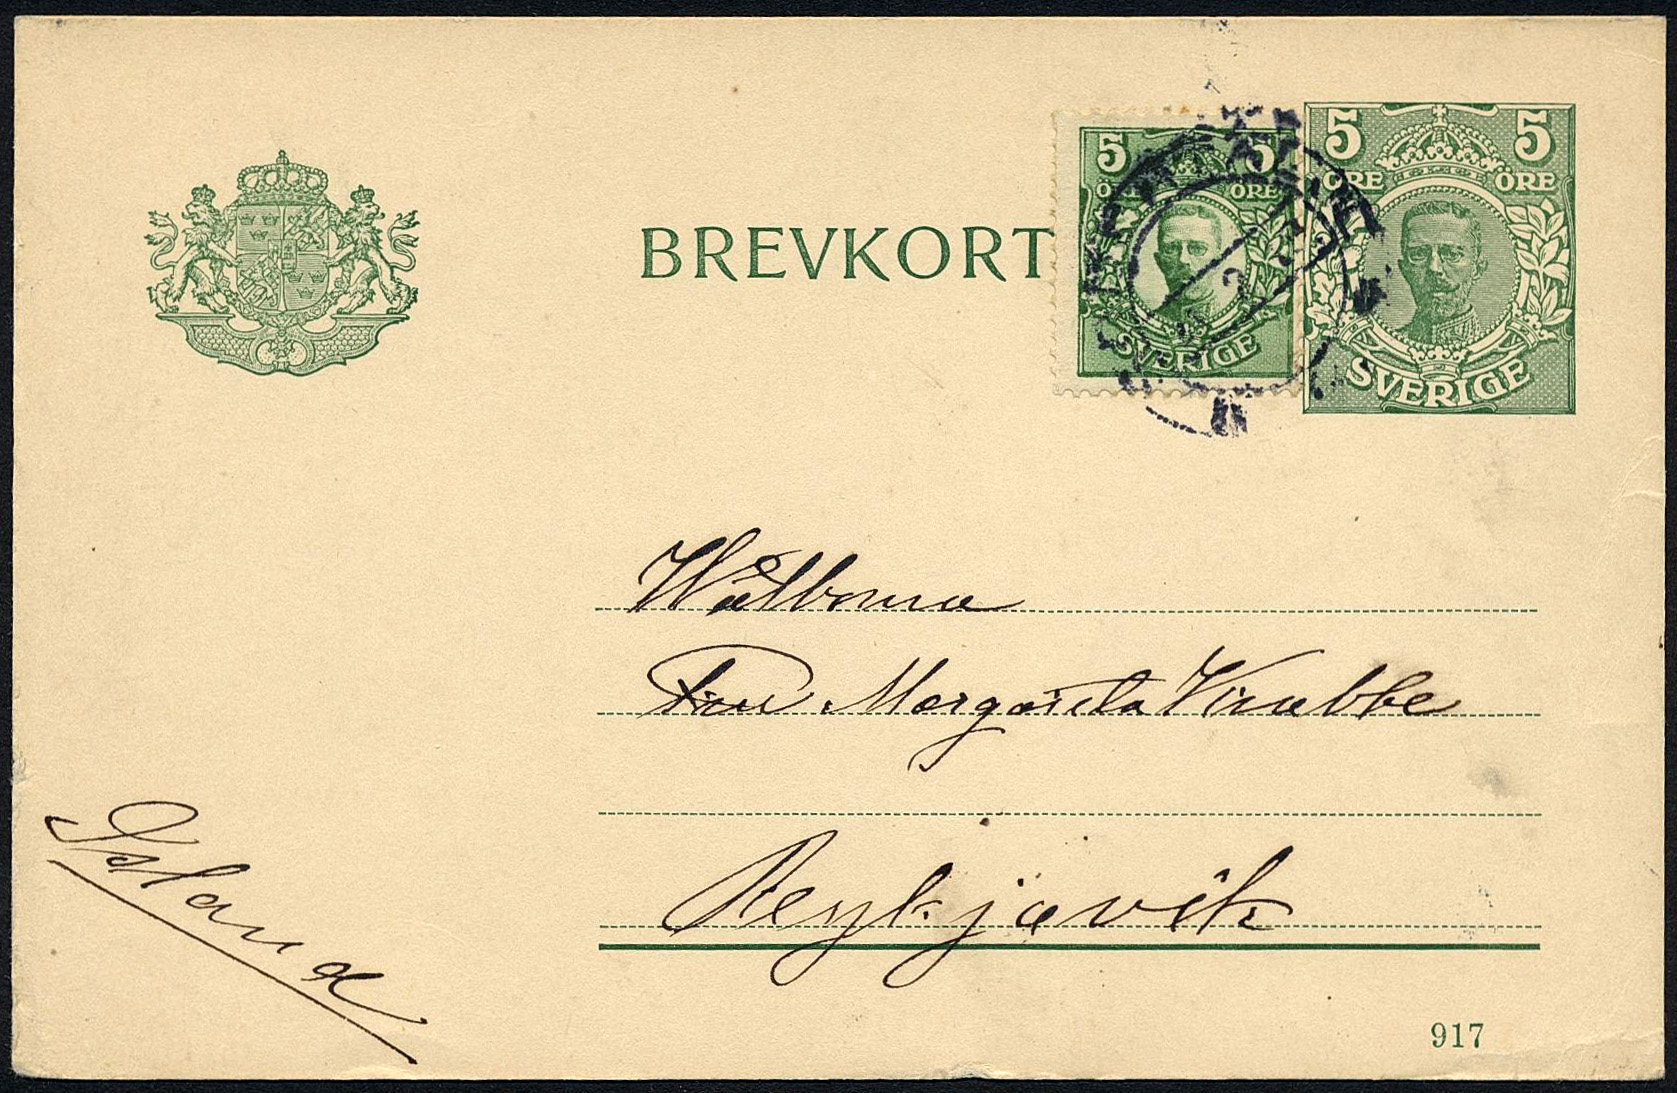 BREVKORT
5 5
ÖRE ÖRE
SVERIGE
5 5
ÖRE ÖRE
SVERIGE
Wälborna
Fru Margareta Krabbe
Reykjavik
Island
917